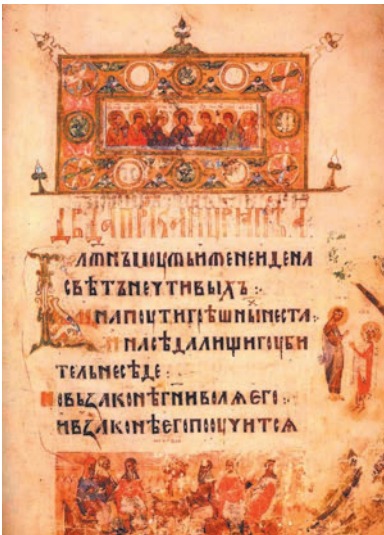 БЛЖНЪ МОУЖЬ ИЖЕ НЕ ИДЕ НА
СВѢТЪ НЕЧТИВЫХЪ :·
И НА ПОУТИ ГРѢШНЫ НЕСТА·
И НА СѢДАЛИЩИ ГОУБИ
ТЕЛЬ НЕ СѢДЕ :
НО ВЬ ЗАКОНѢ ГНИ ВОЛѦ ЕГО :·
И В ЗАКОНѢ ЕГО ПООУЧИТСѦ